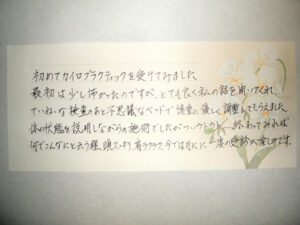 初めてカイロプラクティックを受けてみました。
最初は少し怖かったのですが、とても良く私の話を聞いてくれ、
ていねいな検査のあと不思議なベッドで慎重に優しく調整してもらえました。
体の状態を説明しながらの施術でしたがつい、ウトウト…終わってみれば
何でこんなにと云う程、頭スッキリ、肩ラクラク、今では月に一度の受診が楽しみです。